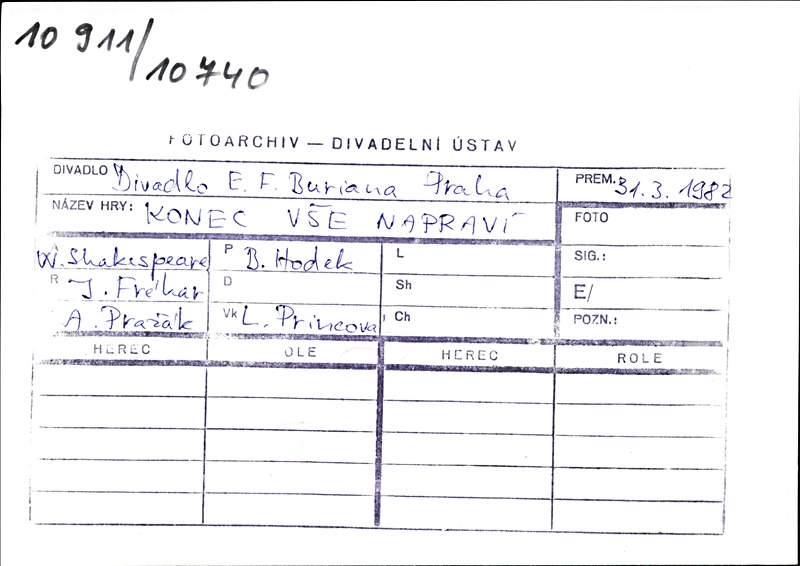 10 911/
10 740
FOTOARCHIV — DIVADELNÍ ÚSTAV
DIVADLO Divadlo E. F. Buriana Praha PREM. 31.3. 1982
NÁZEV HRY: KONEC VŠE NAPRAVÍ FOTO
W. Shakespeare P B. Hodek L SIG.:
R J. Fréhar D Sh E/
A. Pražák Vk L. Princova Ch POZN.:
HEREC OLE HEREC ROLE